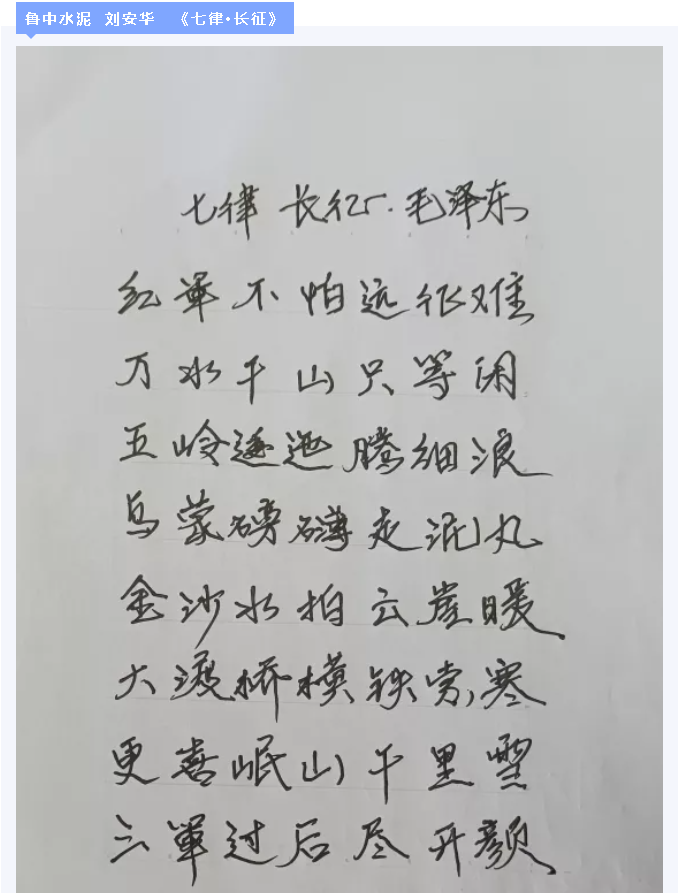 鲁中水泥 刘安华 《七律·长征》
七律 长征·毛泽东
红军不怕远征难
万水千山只等闲
五岭逶迤腾细浪
乌蒙磅礴走泥丸
金沙水拍云崖暖
大渡桥横铁索寒
更喜岷山千里雪
三军过后尽开颜